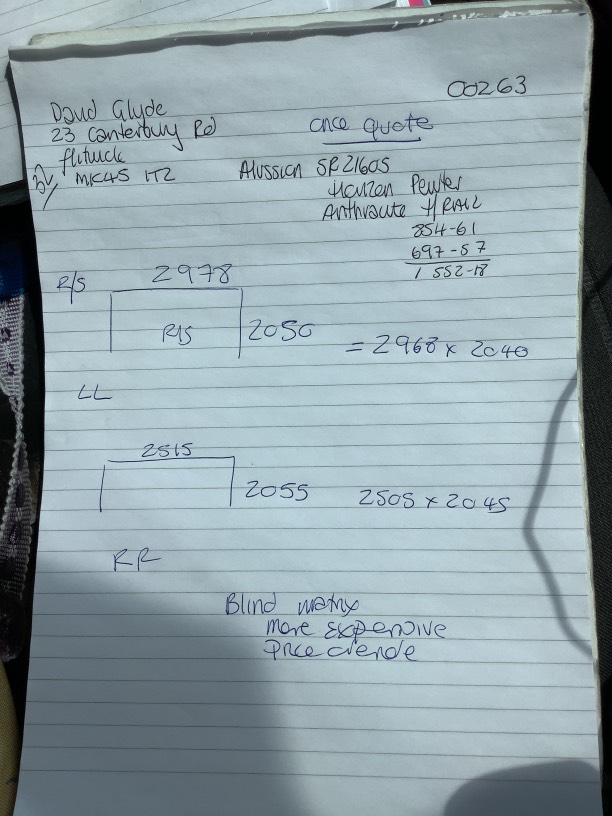 00263
Daud Glyde
23 Canterbury Rd
flitwick
MK45 1TZ
once quote
Alussion SR21605
Pewter
H/RAIL
854-61
697-57
1 552-18
R/S
2978
R/S
2050
= 2968 x 2040
LL
2515
2055
2505 x 2045
RR
Blind matrix
more expensive
Price